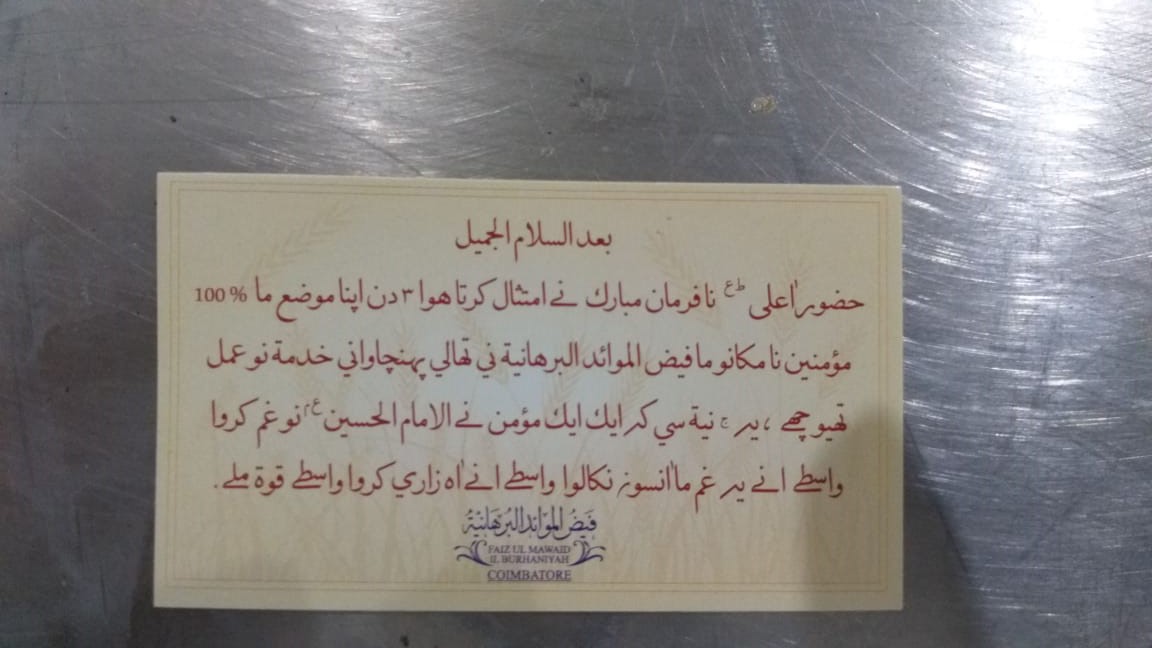 بعد السلام الجميل
حضور اعلى ط ع نا فرمان مبارك نے امتثال كرتا هوا ٣ دن اپنا موضع ما % 100
مؤمنين نا مكانو ما فيض الموائد البرهانية ني تھالي پهنچاواني خدمة نو عمل
تھيو چھے ، يہ ج نية سي كہ ايك ايك مؤمن نے الامام الحسين ع م نو غم كروا
واسطے انے يہ غم ما انسو نكالوا واسطے انے اه زاري كروا واسطے قوة ملے .
فيض الموائد البرهانية
FAIZ UL MAWAID
IL BURHANIYAH
COIMBATORE